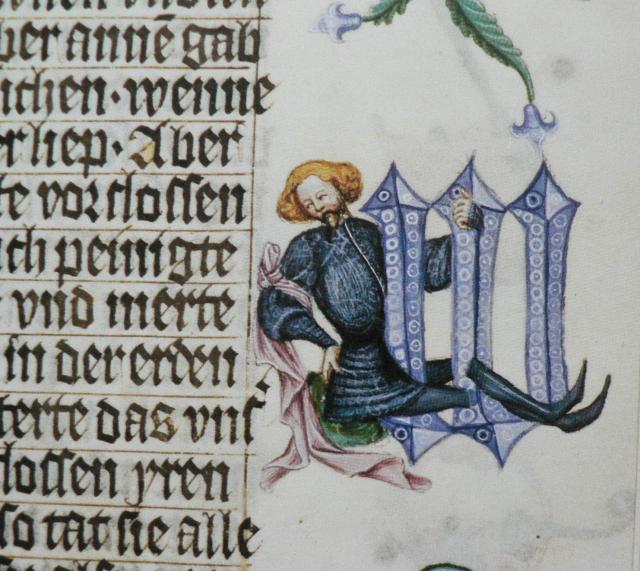 ber annē gab
ichen·wenne
er liep·Aber
te vorſloſſen
ich peinigte
vnd merte
in der erden
terte das vnſ
loſſen yren
ſo tat ſie alle